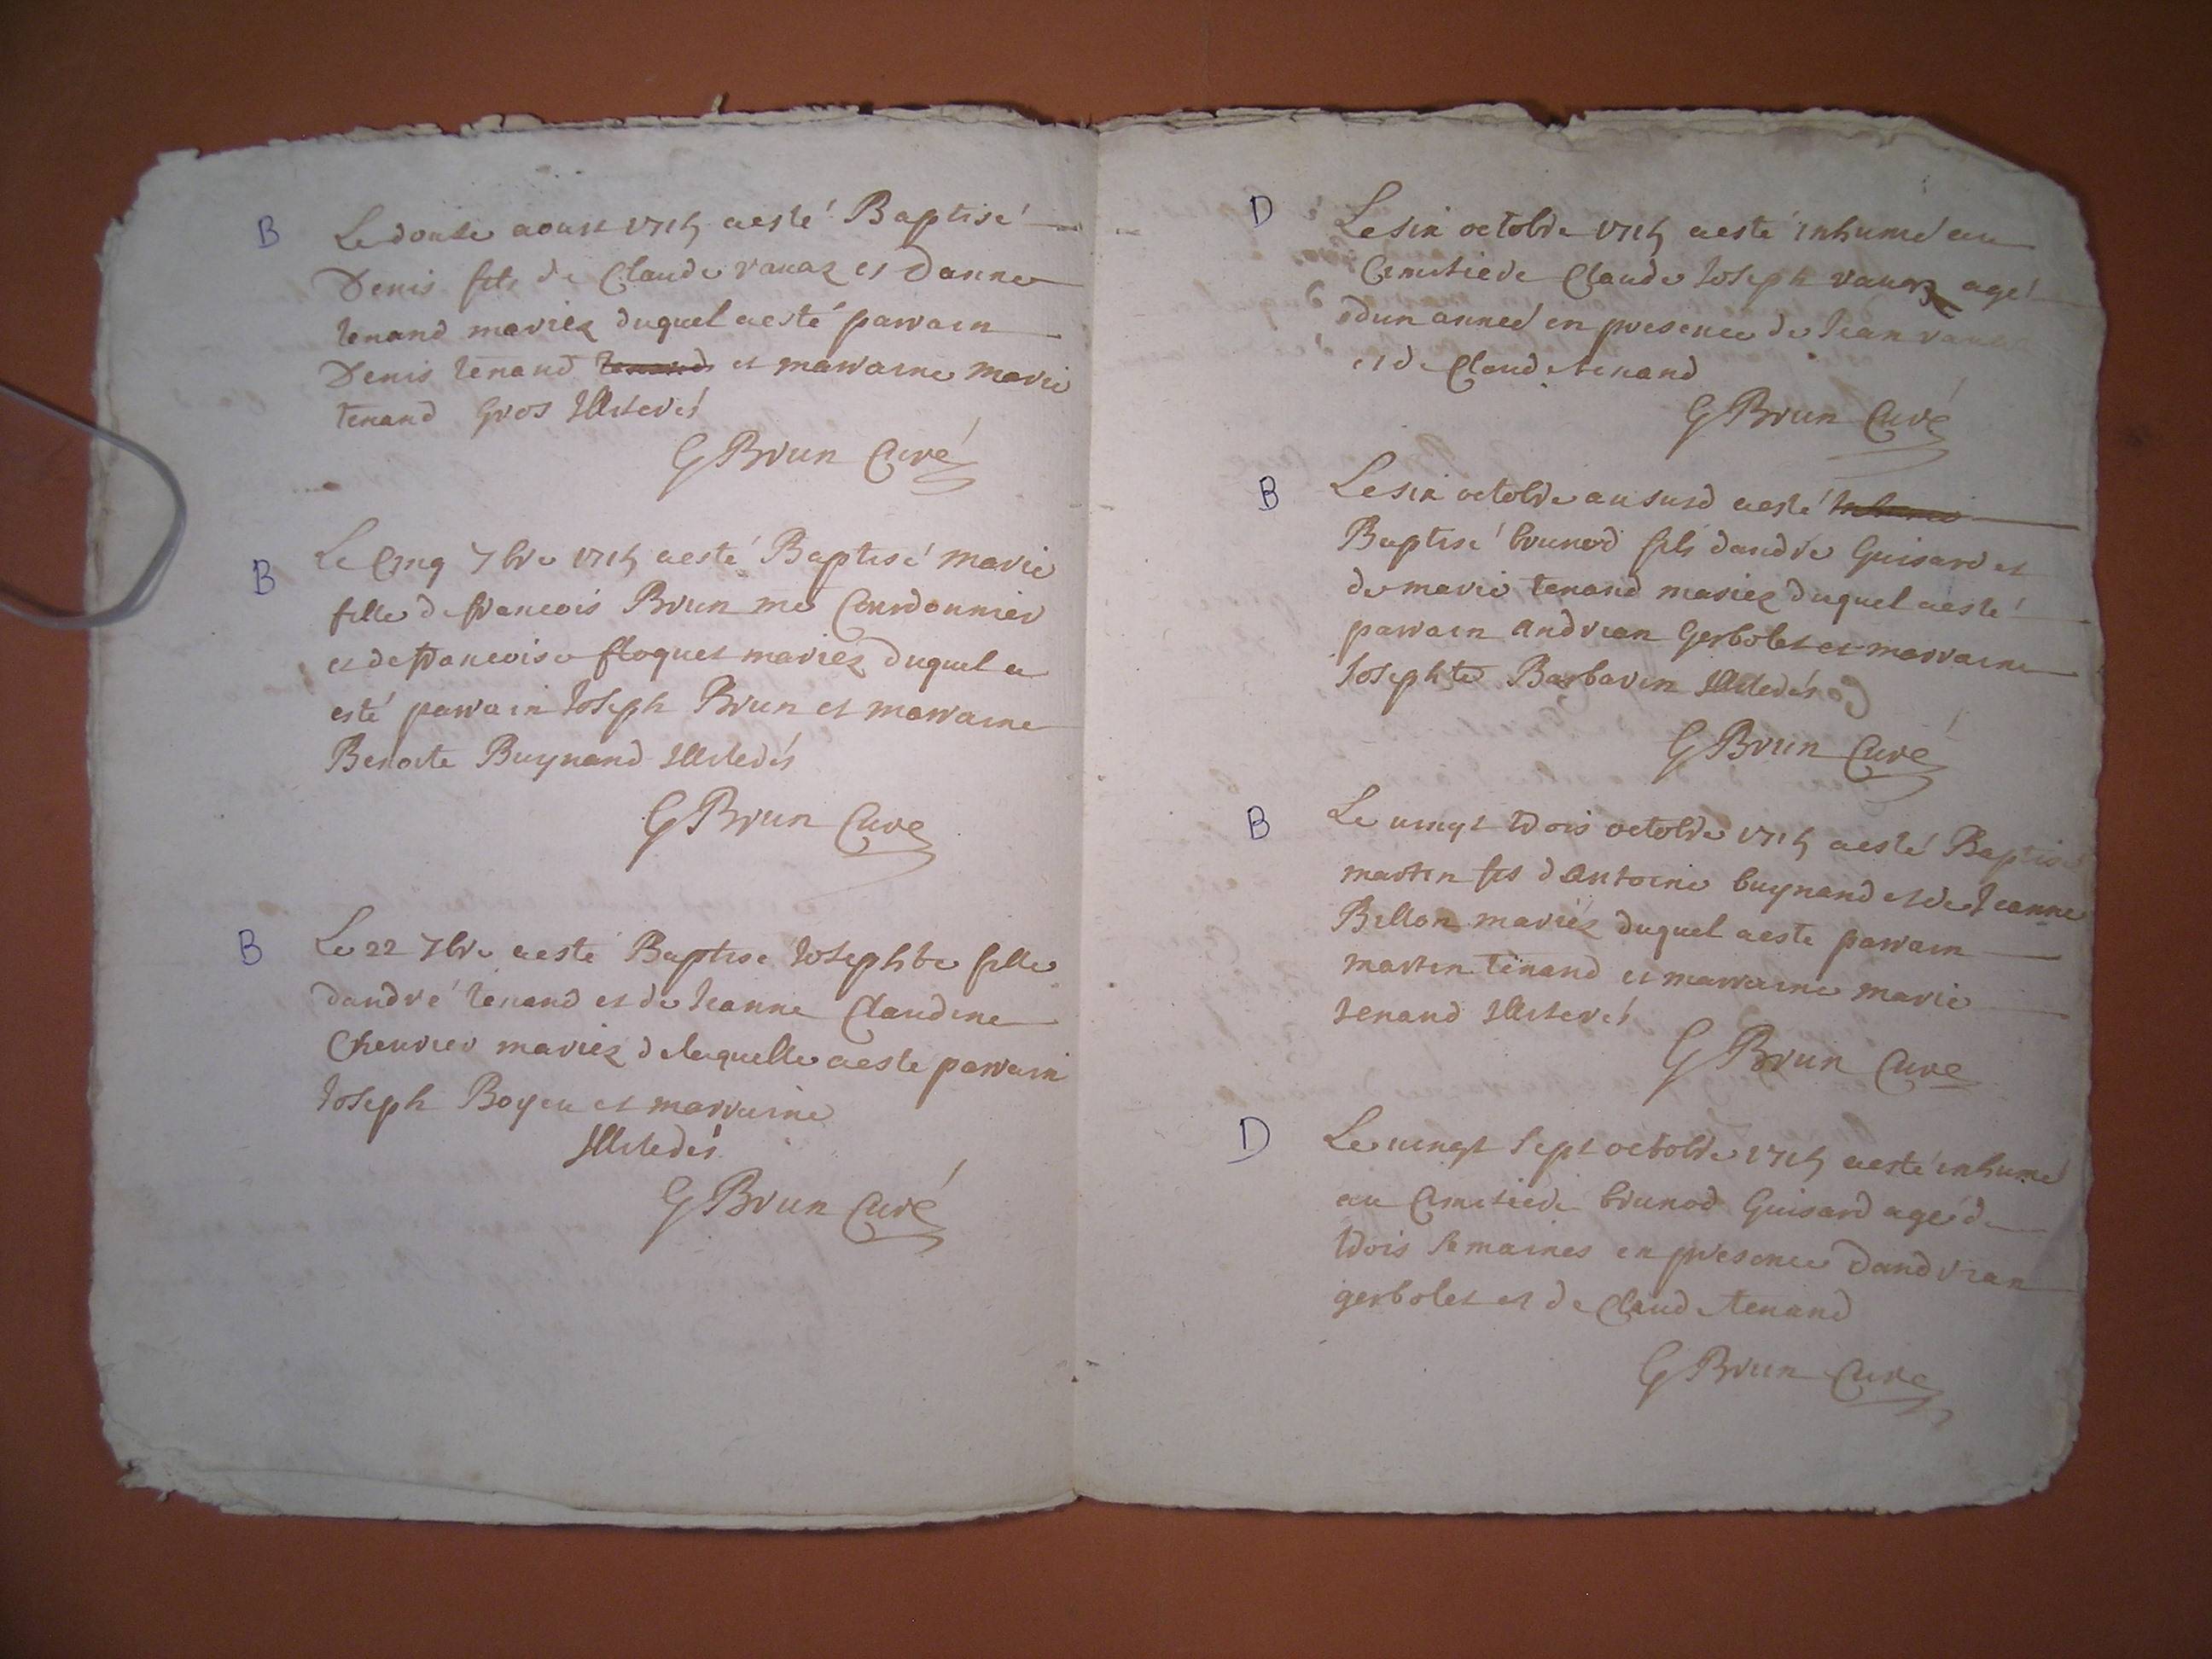 B
Le douse aoust 1715 a esté Baptisé
Denis fils de Claude vanaz et Danne
tenand mariez duquel a esté parrain
Denis tenand tenand et marraine marie
tenand Gros Illiteres
G Brun Curé
B
Le Cinq 7bre 1715 a esté Baptisé marie
fille de francois Brun me Courdonnier
et de francoise floquet mariez duquel a
esté parrain Joseph Brun et marraine
Benoite Buynand
G Brun Curé
B
Le 22 7bre a esté Baptisé Josephte fille
dandré tenand et de Jeanne Claudine
Chevrier mariez de laquelle a este parrain
Joseph Boyeu et marraine
G Brun Curé
D
Le six octobre 1715 a esté inhumé au
Cimetiere Claude Joseph vanaz agé
dun année en presence de Jean
et de Claude tenand
G Brun Curé
B
Le six octobre au susd a esté inhumé
Baptisé brunod fils dandré Guisard et
de marie tenand mariez duquel a esté
parrain andrean Gerbolet et marraine
Josephte Barbarin
G Brun Curé
B
Le vingt trois octobre 1715 a esté Baptisé
martin fis d Antoine buynand et de Jeanne
Billon mariéz duquel a este parrain
martin tenand et marraine marie
tenand Illiteres
G Brun Cure
D
Le vingt sept octobre 1715 a esté inhumé
au Cimetiere brunod Guisard agé de
trois semaines en presence Dandrean
gerbolet et de Claude tenand
G Brun Cure